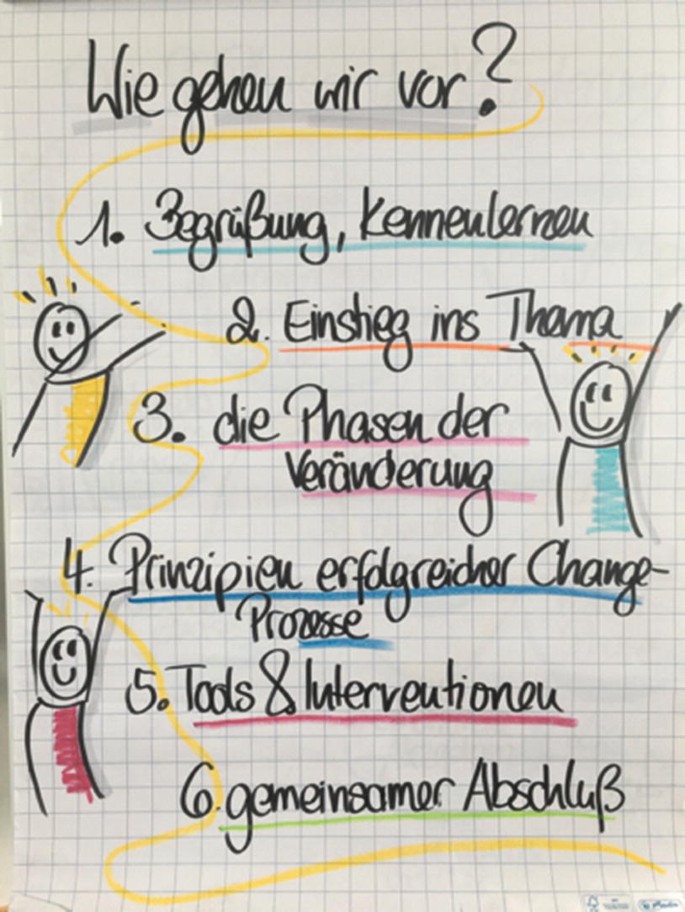 Wie gehen wir vor?
1. Begrüßung, Kennenlernen
2. Einstieg ins Thema
3. die Phasen der
Veränderung
4. Prinzipien erfolgreicher Change-
Prozesse
5. Tools & Interventionen
6. gemeinsamer Abschluß